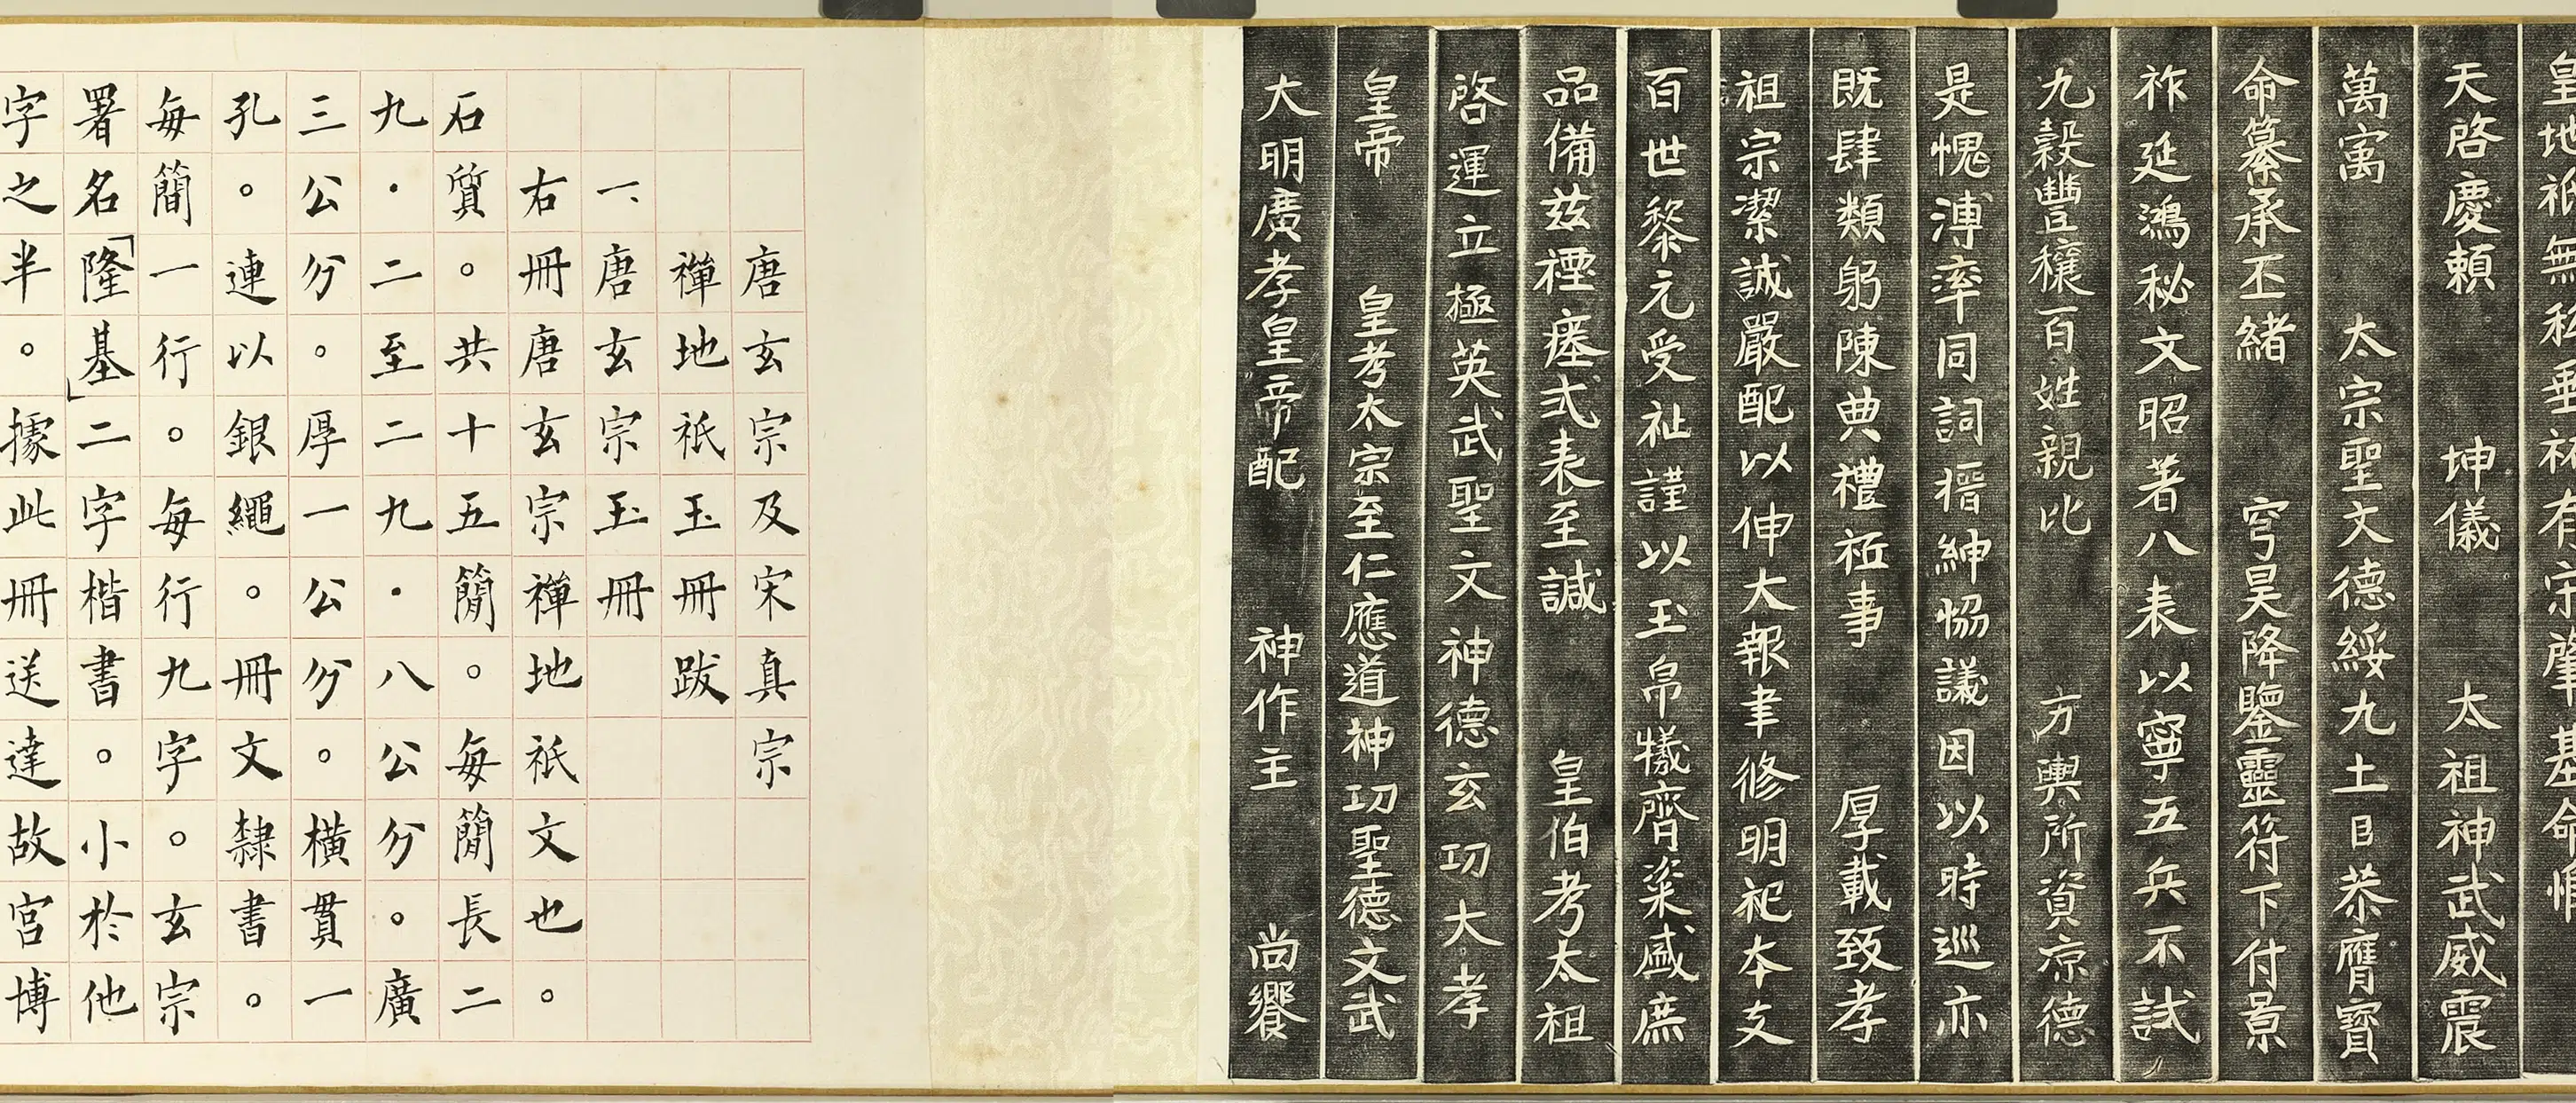 皇地祇無私垂祐有宋肇基命惟
天啓慶賴 坤儀 太祖神武威震
萬㝢 太宗聖文德綏九土臣恭膺寶
命纂承丕緒 穹昊降鑒靈符下付景
祚延鴻秘文昭著八表以寧五兵不試
九穀豐穰百姓親比 方輿所資凉德
是愧溥率同詞搢紳恊議因以時巡亦
既肆類躬陳典禮祗事 厚載致孝
祖宗潔誠嚴配以伸大報聿修明祀本支
百世黎元受祉謹以玉帛犧齊粢盛庶
品備兹禋瘞式表至諴 皇伯考太祖
啓運立極英武聖文神德玄功大孝
皇帝 皇考太宗至仁應道神功聖德文武
大明廣孝皇帝配 神作主 尚饗
唐玄宗及宋真宗
禪地祇玉冊跋
一、唐玄宗玉冊
右冊唐玄宗禪地祇文也。
石質。共十五簡。每簡長二
九・二至二九・八公分。廣
三公分。厚一公分。橫貫一
孔。連以銀繩。冊文隸書。
每簡一行。每行九字。玄宗
署名「隆基」二字楷書。小於他
字之半。據此冊送達故宮博